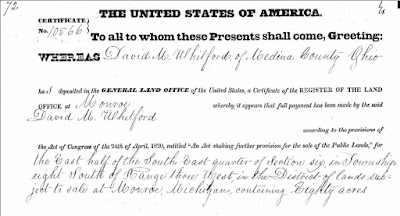 72
THE UNITED STATES OF AMERICA.
CERTIFICATE
No. 10566
To all to whom these Presents shall come, Greeting:
WHEREAS David M. Whitford of Medina County Ohio
has deposited in the GENERAL LAND OFFICE of the United States, a Certificate of the REGISTER OF THE LAND
OFFICE at Monroe whereby it appears that full payment has been made by the said
David M. Whitford
according to the provisions of
the Act of Congress of the 24th of April, 1820, entitled "An Act making further provision for the sale of the Public Lands," for
the East half of the South East quarter of Section six, in Township
eight South of Range three West, in the District of lands sub-
ject to sale at Monroe, Michigan, containing Eighty acres